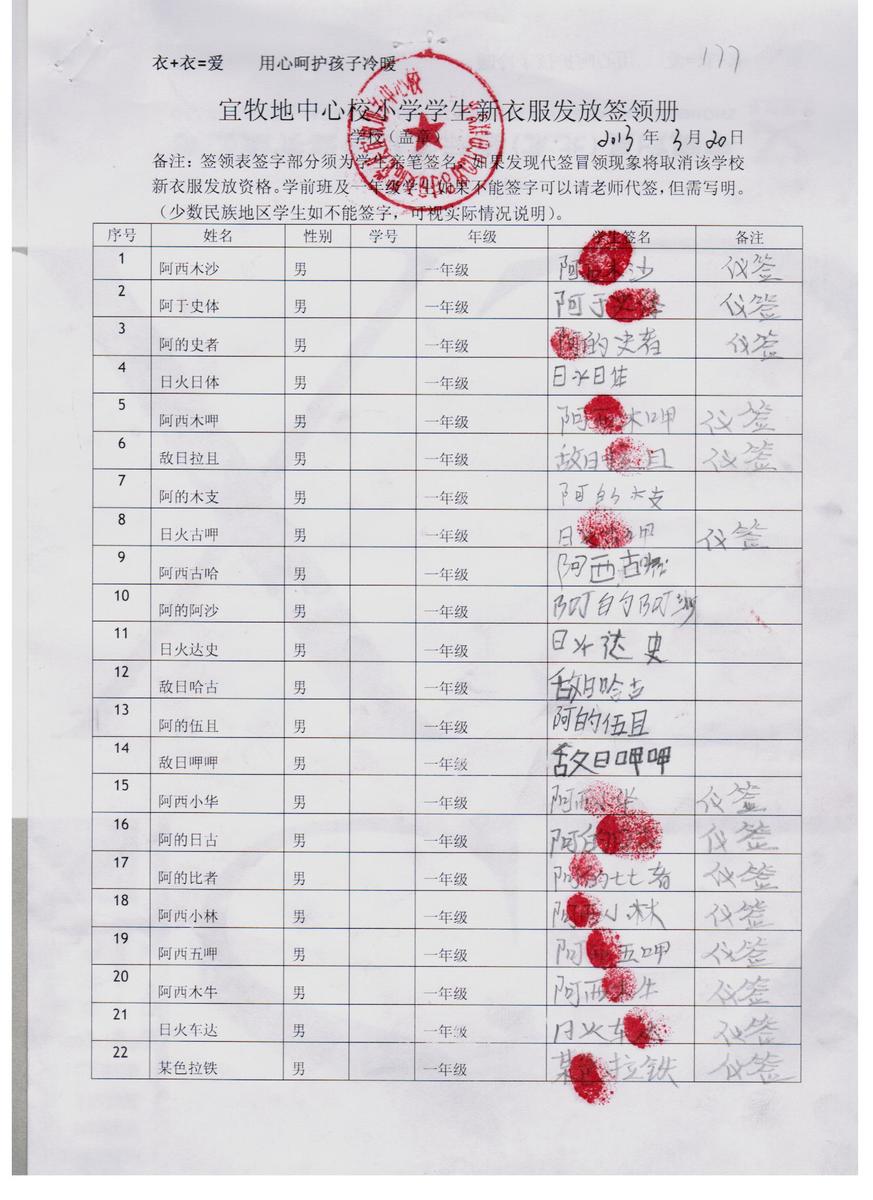 衣+衣=爱 用心呵护孩子冷暖
177
宜牧地中心校小学学生新衣服发放签领册
学校（盖章） 2013 年 3 月 20 日
备注：签领表签字部分须为学生亲笔签名，如果发现代签冒领现象将取消该学校
新衣服发放资格。学前班及一年级学生如果不能签字可以请老师代签，但需写明。
（少数民族地区学生如不能签字，可视实际情况说明）。
序号 姓名 性别 学号 年级 学生签名 备注
1 阿西木沙 男 一年级 阿西木沙 代签
2 阿于史体 男 一年级 阿于 代签
3 阿的史者 男 一年级 阿的史者 代签
4 日火日体 男 一年级 日火日体
5 阿西木呷 男 一年级 阿西木呷 代签
6 敌日拉且 男 一年级 敌日拉且 代签
7 阿的木支 男 一年级 阿的木支
8 日火古呷 男 一年级 日火古呷 代签
9 阿西古哈 男 一年级 阿西古哈
10 阿的阿沙 男 一年级 阿的阿沙
11 日火达史 男 一年级 日火达史
12 敌日哈古 男 一年级 敌日哈古
13 阿的伍且 男 一年级 阿的伍且
14 敌日呷呷 男 一年级 敌日呷呷
15 阿西小华 男 一年级 阿西小华 代签
16 阿的日古 男 一年级 阿的 代签
17 阿的比者 男 一年级 阿的比者 代签
18 阿西小林 男 一年级 阿西小林 代签
19 阿西五呷 男 一年级 阿西五呷 代签
20 阿西木牛 男 一年级 阿西木牛 代签
21 日火车达 男 一年级 日火车达 代签
22 某色拉铁 男 一年级 某色拉铁 代签